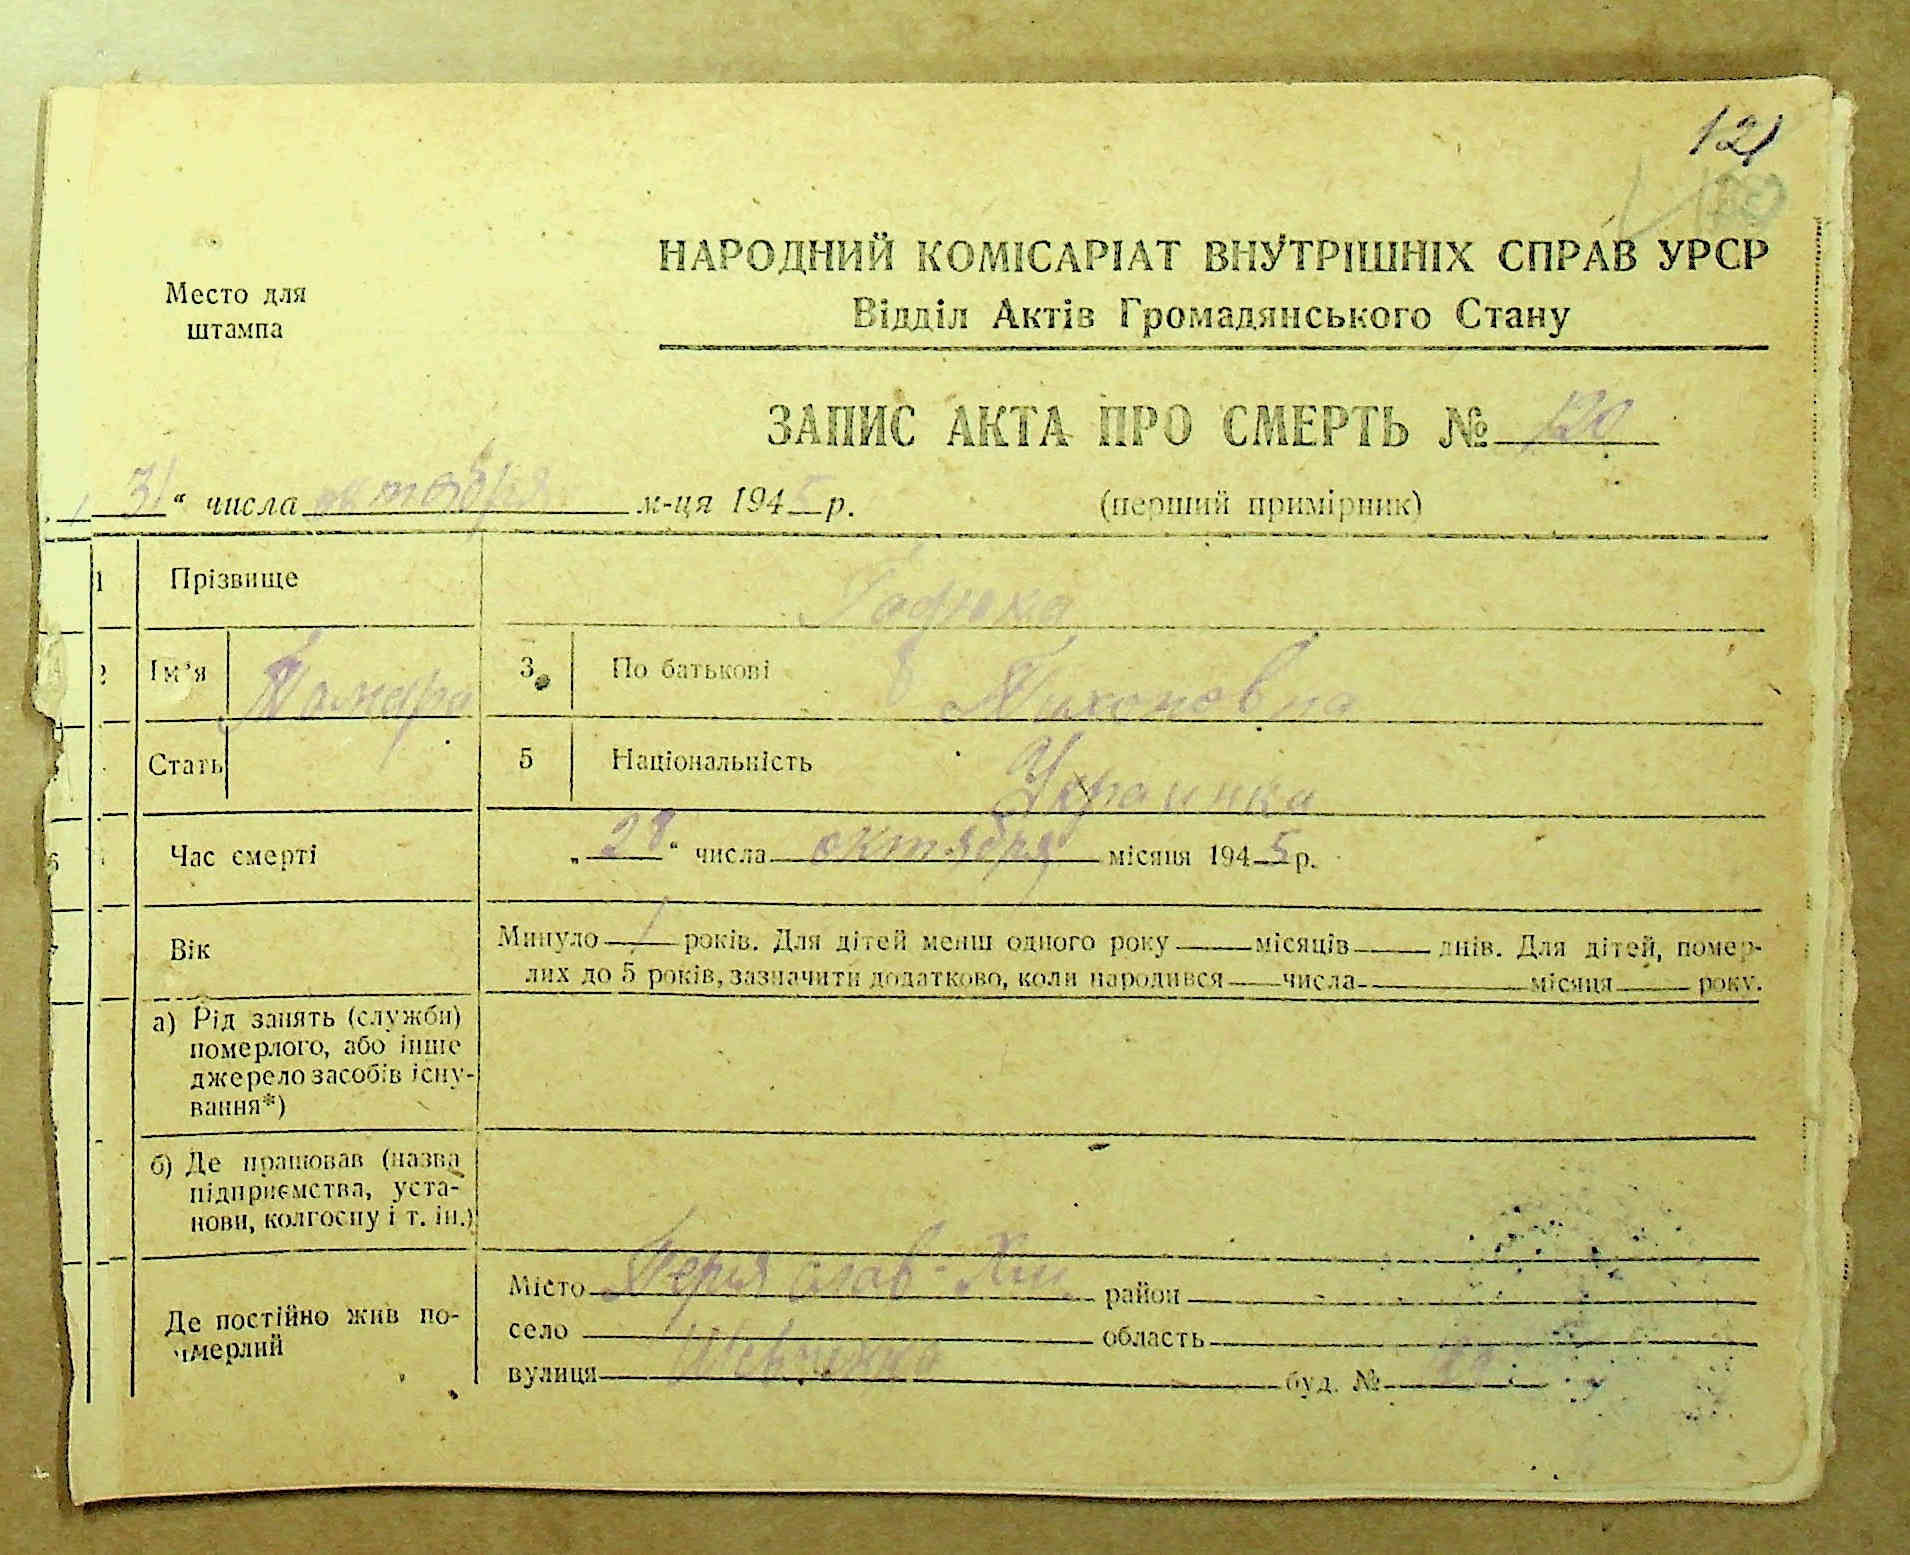 121
НАРОДНИЙ КОМІСАРІАТ ВНУТРІШНІХ СПРАВ УРСР
Відділ Актів Громадянського Стану
Место для
штампа
ЗАПИС АКТА ПРО СМЕРТЬ № 120
31 “ числа октября м-ця 1945 р. (перший примірник)
1 Прізвище
2 Ім’я Тамара 3 По батькові Тихоновна
Стать 5 Національність Украинка
Час смерті „ 28 “ числа октября місяця 1945 р.
Вік Минуло 1 років. Для дітей менш одного року місяців днів. Для дітей, помер-
лих до 5 років, зазначити додатково, коли народився числа місяця року.
а) Рід занять (служби)
померлого, або інше
джерело засобів існу-
вання*)
б) Де працював (назва
підприємства, уста-
нови, колгоспу і т. ін.)
Де постійно жив по-
мерлий
Місто Переяслав-Хм. район
село область
вулиця Шевченка буд. №